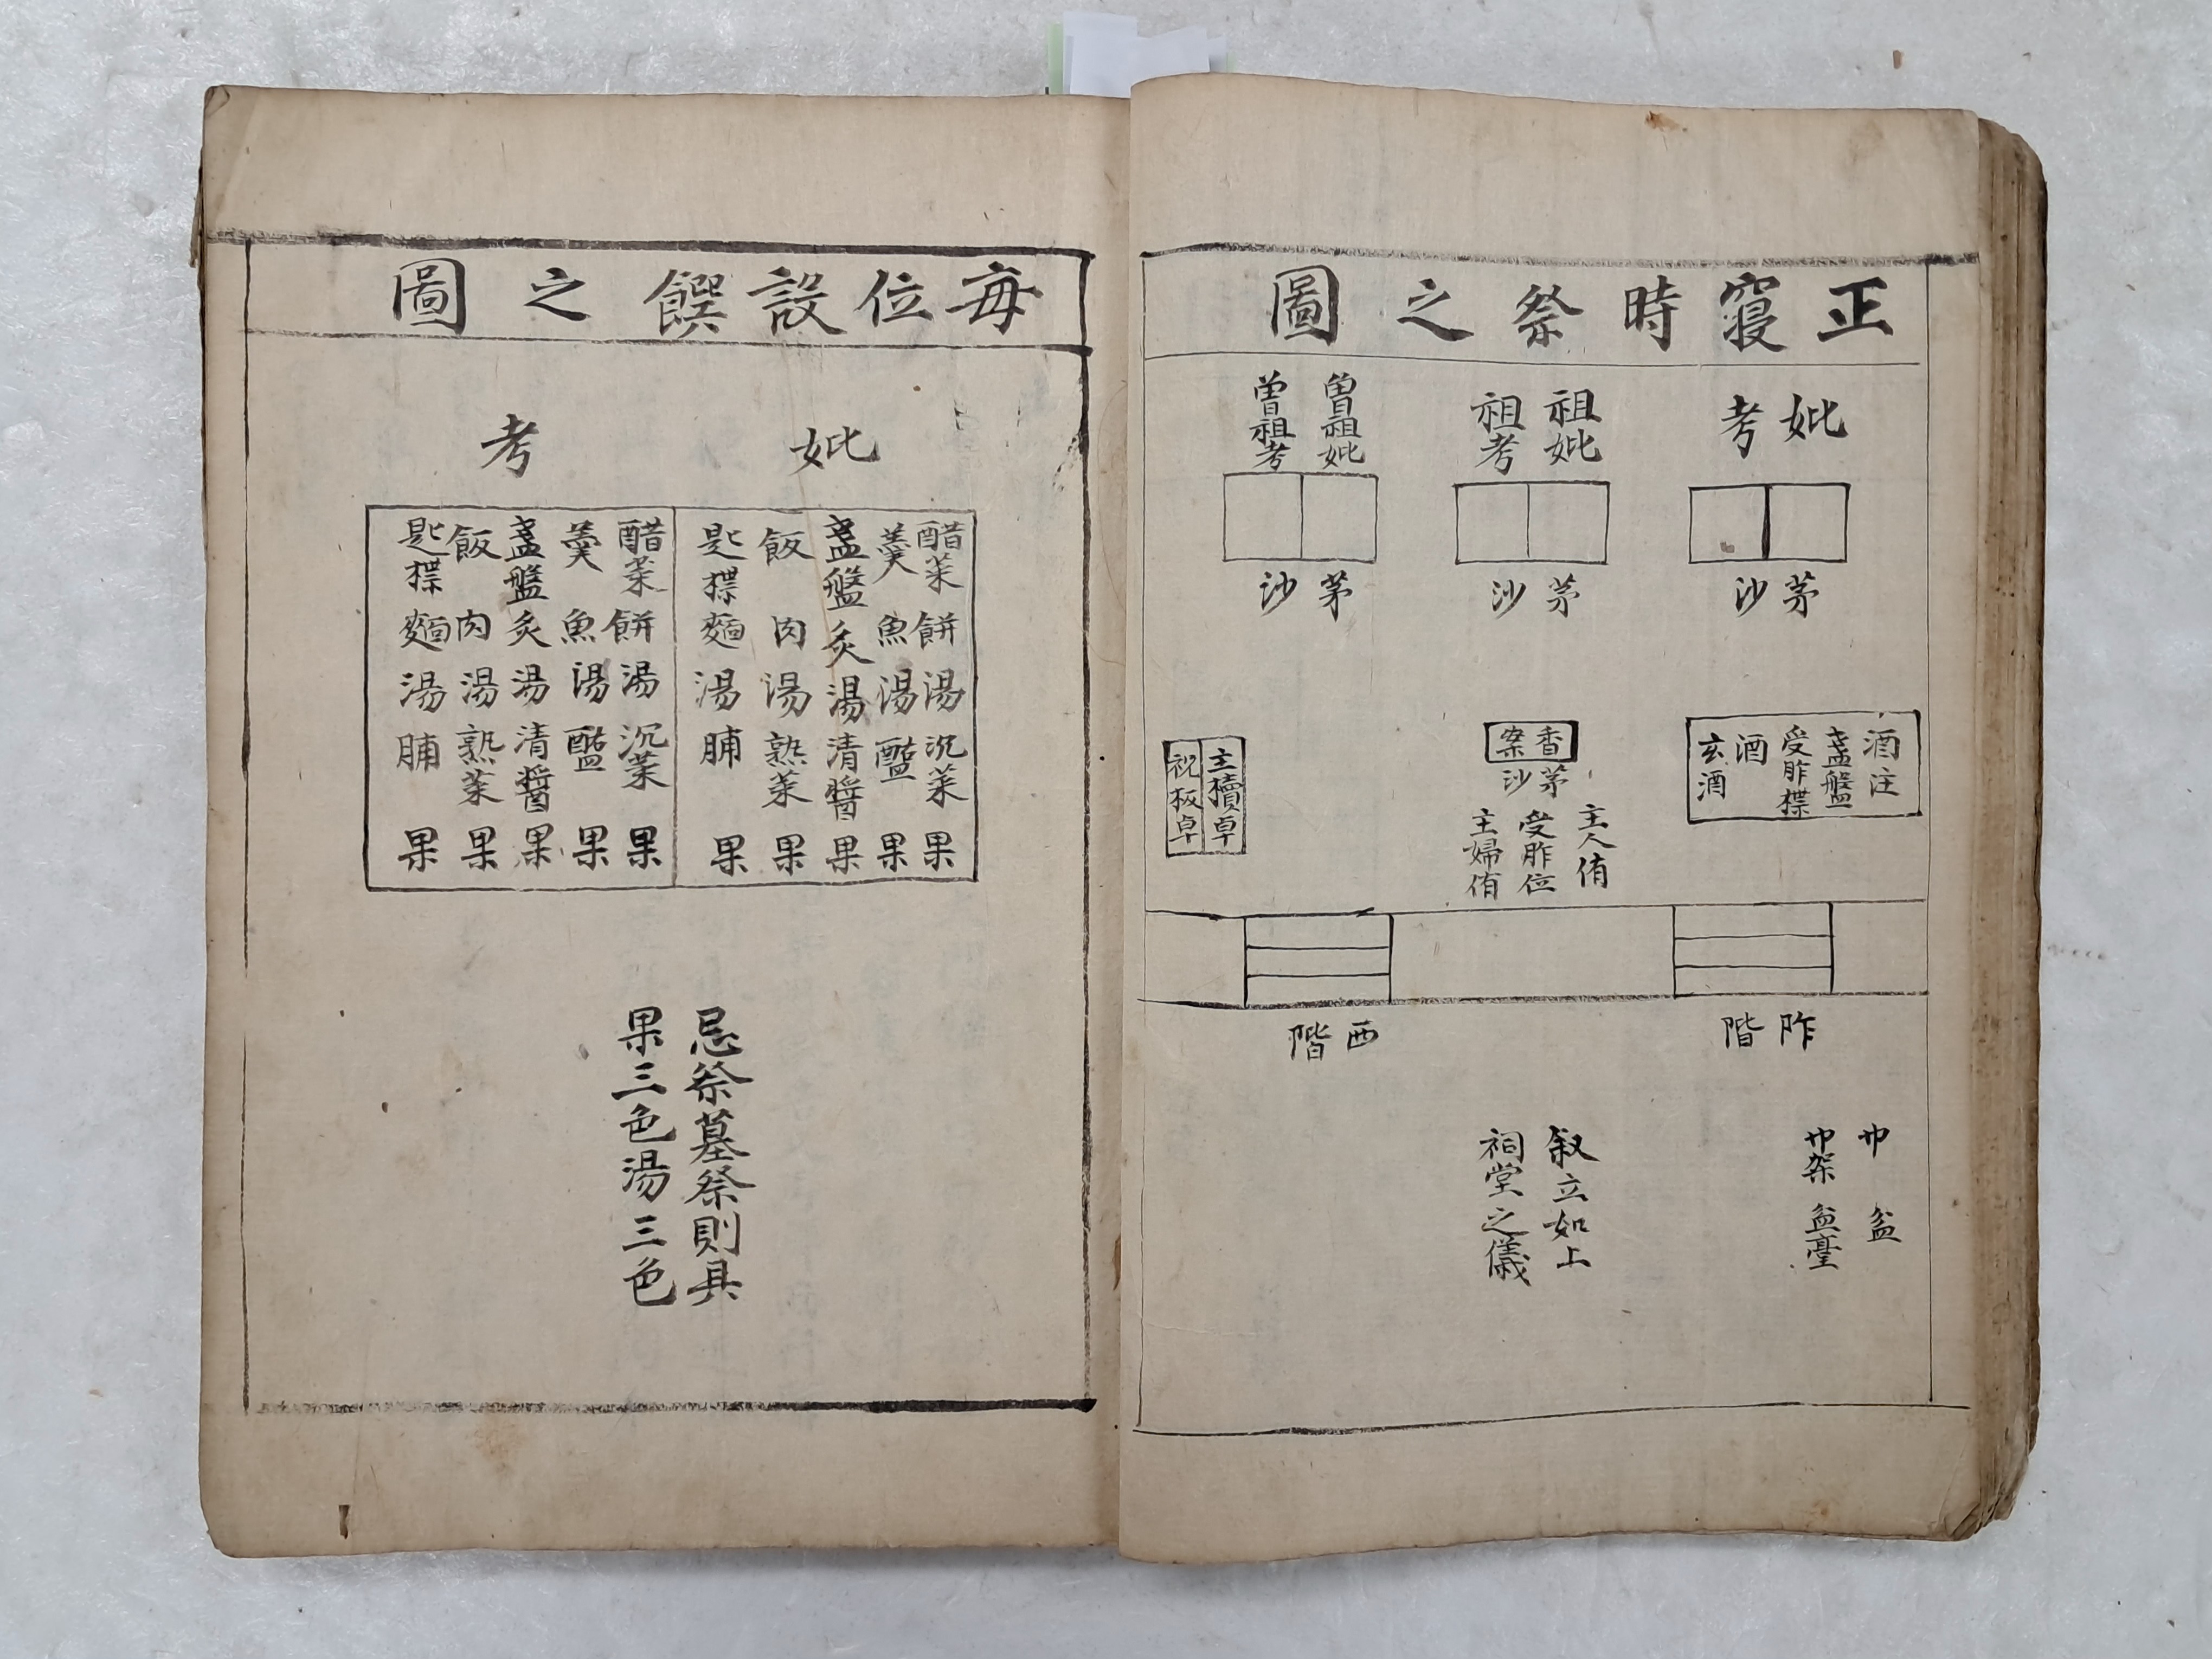 正寢時祭之圖
妣
考
祖妣
祖考
曾祖妣
曾祖考
茅沙
茅沙
茅沙
酒注
盞盤
受胙楪
酒
玄酒
香案
茅沙
主櫝卓
祝板卓
主人侑
受胙位
主婦侑
阼階
西階
巾 盆
巾架 盆臺
叙立如上
祠堂之儀
每位設饌之圖
妣
考
醋菜 餠 湯 沉菜 果
羹 魚 湯 醢 果
盞盤 炙 湯 清醬 果
飯 肉 湯 熟菜 果
匙楪 麵 湯 脯 果
醋菜 餠 湯 沉菜 果
羹 魚 湯 醢 果
盞盤 炙 湯 清醬 果
飯 肉 湯 熟菜 果
匙楪 麵 湯 脯 果
忌祭墓祭則具
果三色湯三色